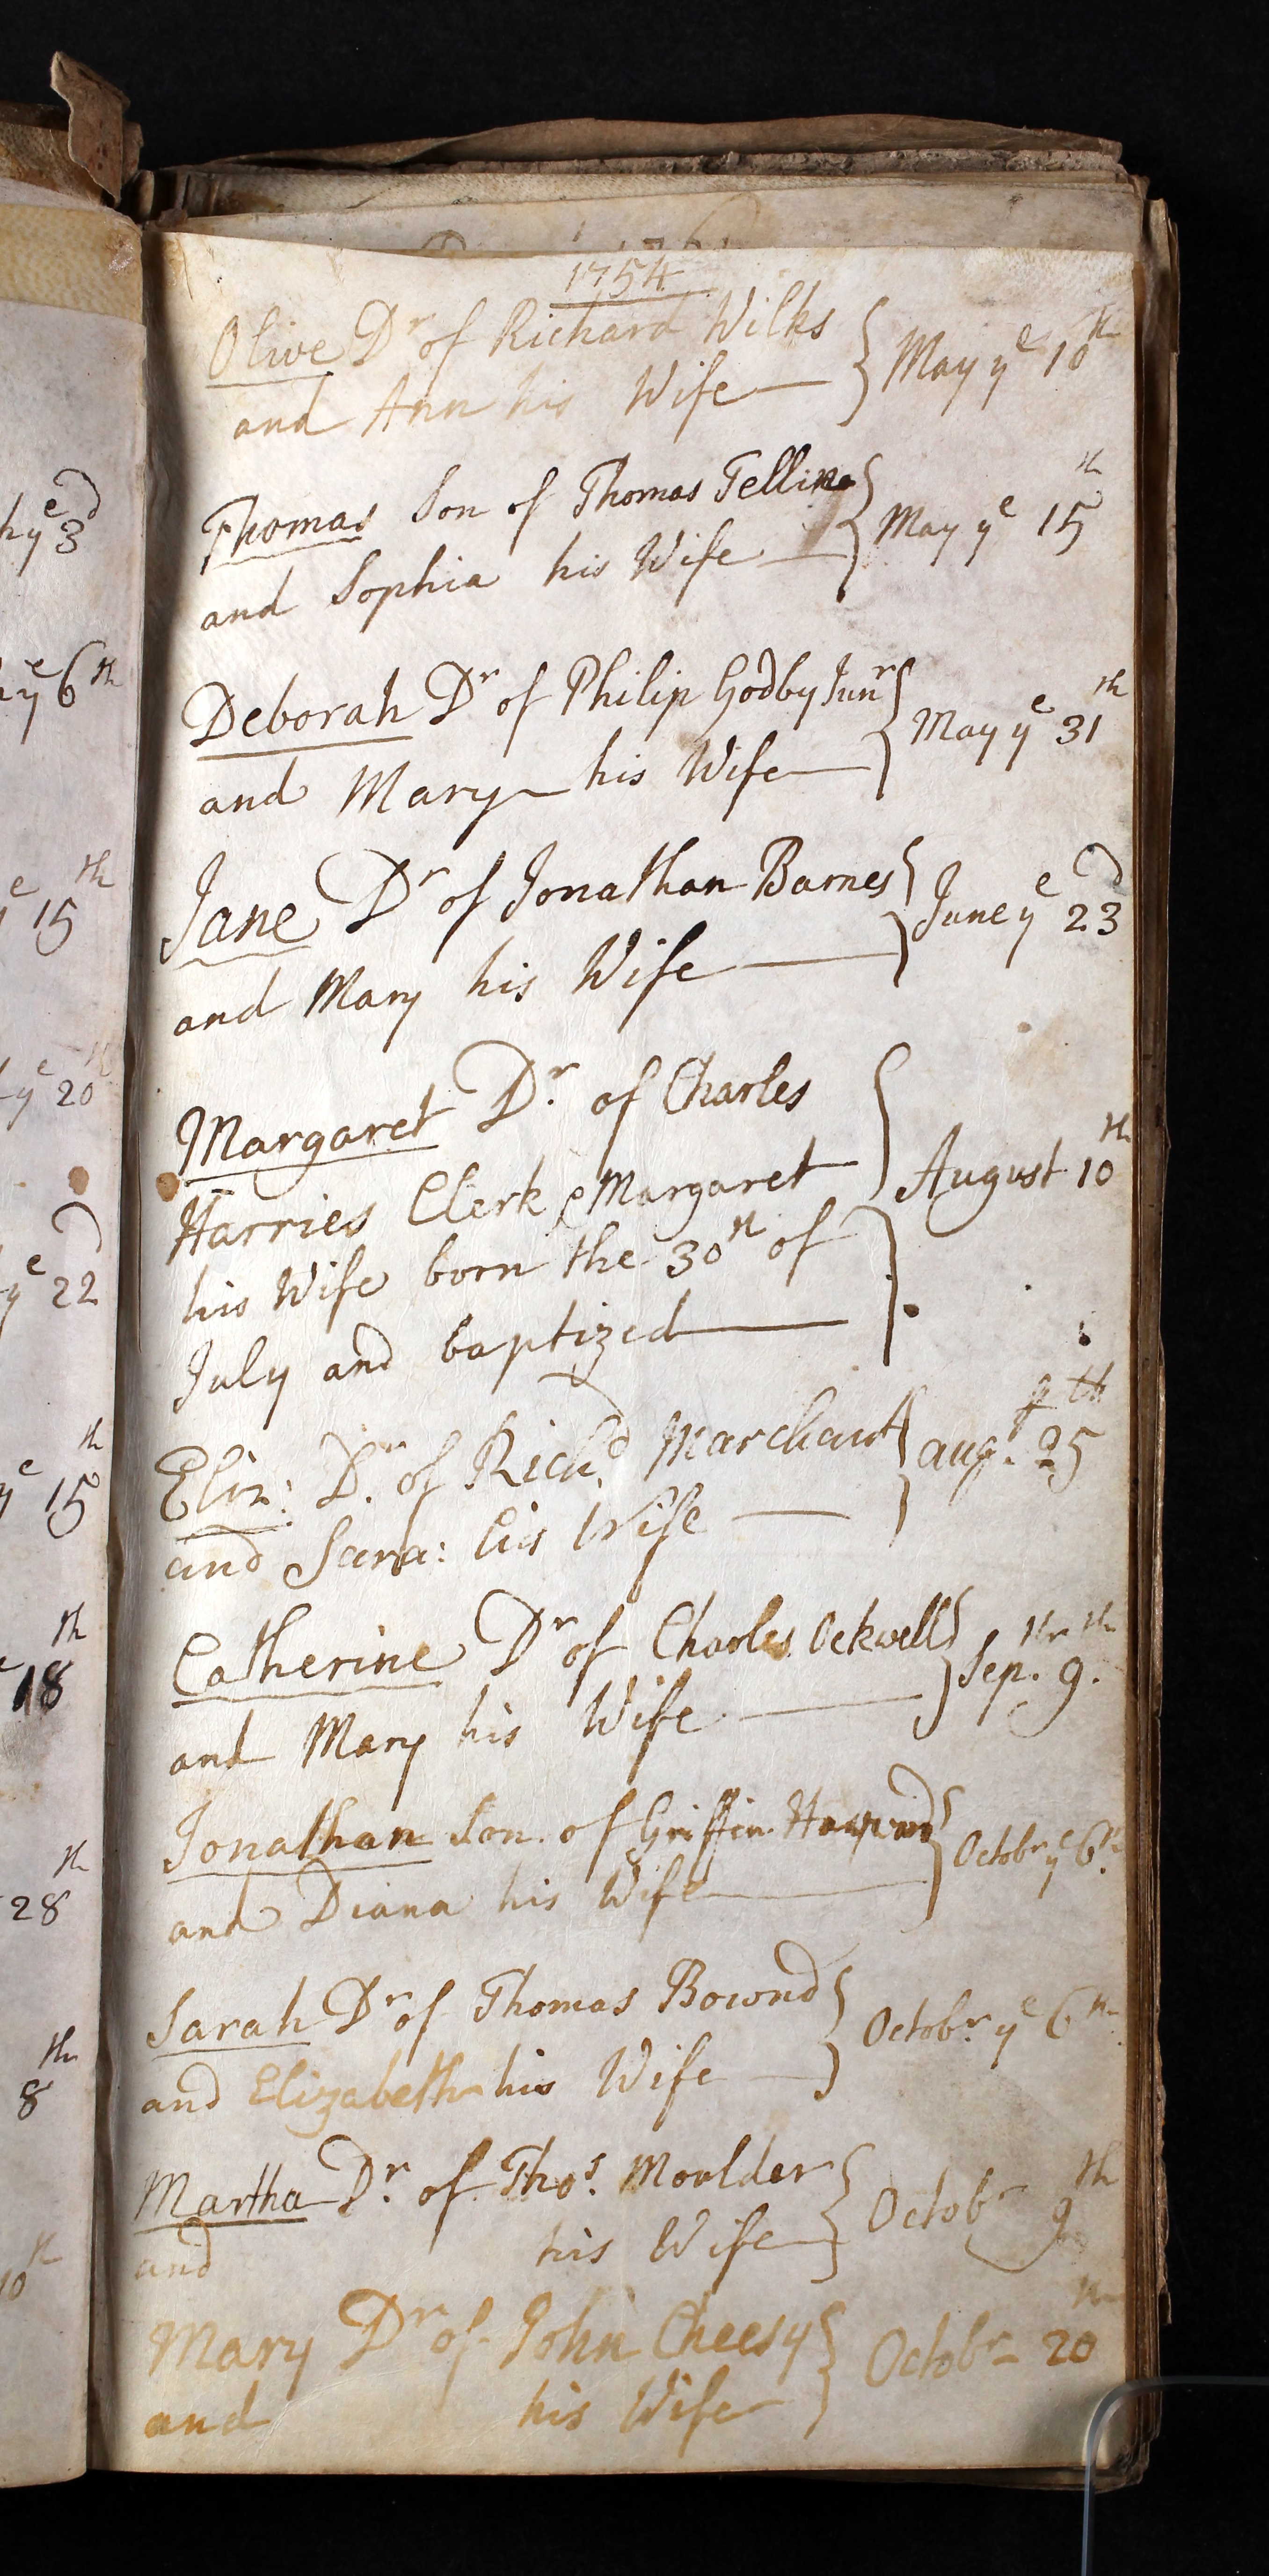 1754
Olive Dr of Richard Wilks
and Ann his Wife } May ye 10th
Thomas Son of Thomas Telling
and Sophia his Wife } May ye 15th
Deborah Dr of Philip Godby Junr
and Mary his Wife } May ye 31th
Jane Dr of Jonathan Barnes
and Mary his Wife } June ye 23d
Margaret Dr. of Charles
Harries Clerk & Margaret
his Wife born the 30th of
July and baptized } August 10th
Eliz: Dr. of Richd. Marchant
and Sara: his Wife } augt. 25th
Catherine Dr of Charles Ockwell
and Mary his Wife } Sep. 9th.
Jonathan Son of Griffin
and Diana his Wife } Octobr ye 6th.
Sarah Dr of Thomas Bownd
and Elizabeth his Wife } Octobr. ye 6th
Martha Dr. of Thos. Moulder
and his Wife } Octobr 9th
Mary Dr of John Cheesy
and his Wife } Octobr 20th
hye 3d
ye 6th
e 15th
ye 20th
ye 22d
ye 15th
18th
28th
8th
10th